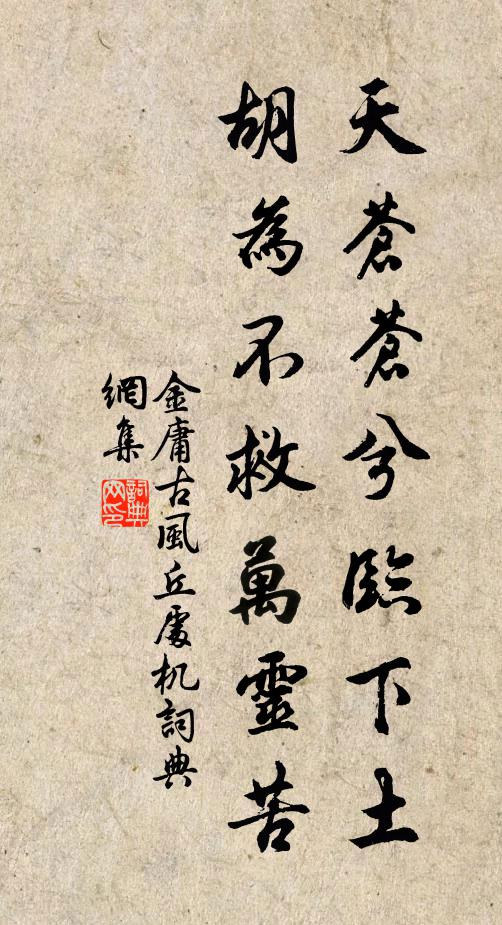 天蒼蒼兮臨下土
胡為不救萬靈苦
金庸古風丘處机詞典
網集
詞典
网印